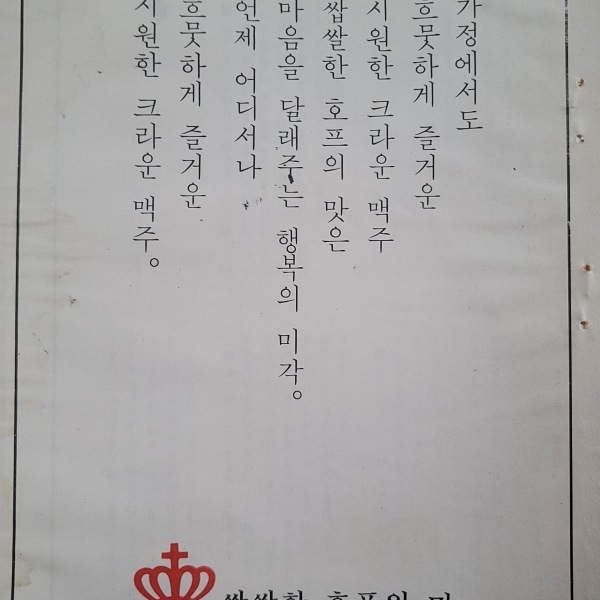 가정에서도
흐뭇하게 즐거운
시원한 크라운 맥주
쌉쌀한 호프의 맛은
마음을 달래주는 행복의 미각。
언제 어디서나
흐뭇하게 즐거운
시원한 크라운 맥주。
쌉쌀한 호프의 미